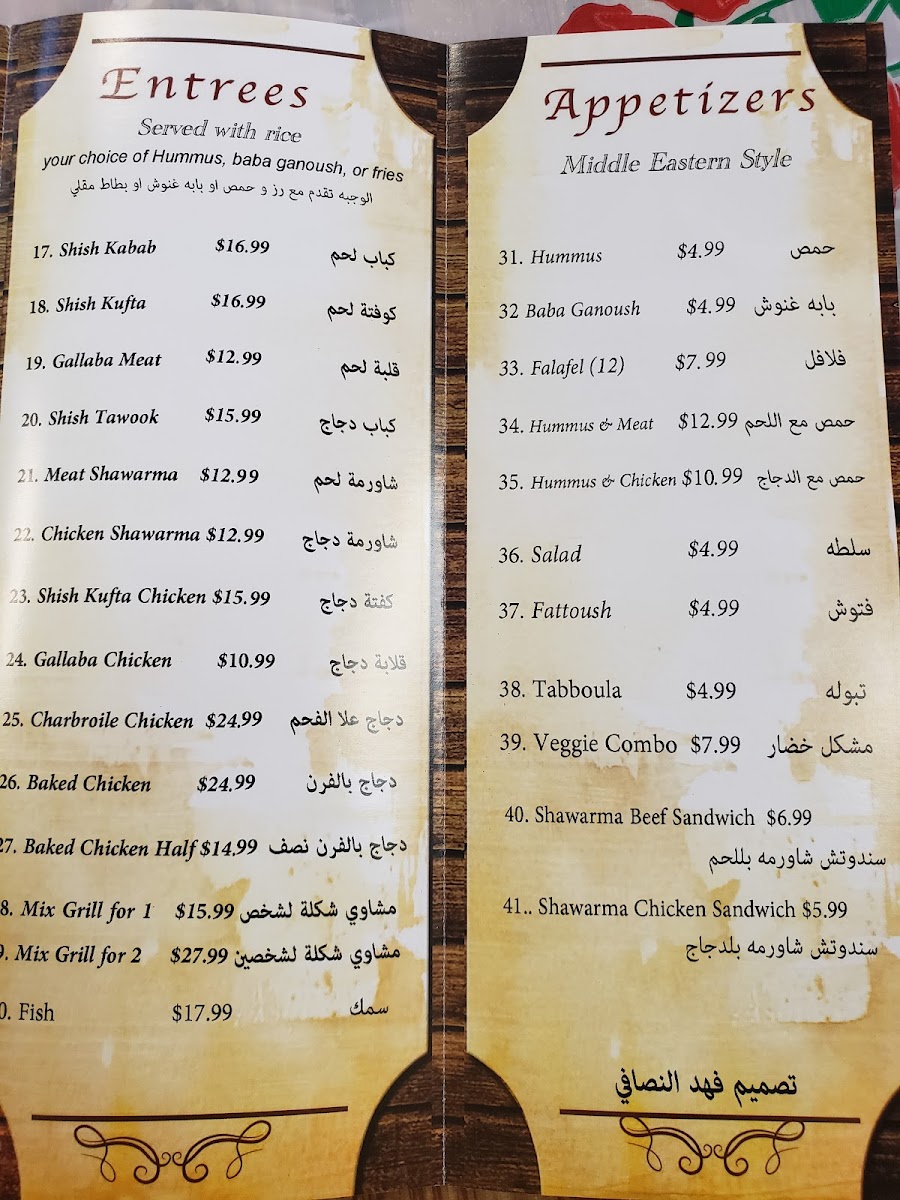 Entrees
Served with rice
your choice of Hummus, baba ganoush, or fries
الوجبه تقدم مع رز و حمص او بابه غنوش او بطاط مقلي
17. Shish Kabab $16.99 كباب لحم
18. Shish Kufta $16.99 كوفتة لحم
19. Gallaba Meat $12.99 قلبة لحم
20. Shish Tawook $15.99 كباب دجاج
21. Meat Shawarma $12.99 شاورمة لحم
22. Chicken Shawarma $12.99 شاورمة دجاج
23. Shish Kufta Chicken $15.99 كفتة دجاج
24. Gallaba Chicken $10.99 قلابة دجاج
25. Charbroile Chicken $24.99 دجاج علا الفحم
26. Baked Chicken $24.99 دجاج بالفرن
27. Baked Chicken Half $14.99 دجاج بالفرن نصف
8. Mix Grill for 1 $15.99 مشاوي شكلة لشخص
9. Mix Grill for 2 $27.99 مشاوي شكلة لشخصين
0. Fish $17.99 سمك
Appetizers
Middle Eastern Style
31. Hummus $4.99 حمص
32 Baba Ganoush $4.99 بابه غنوش
33. Falafel (12) $7.99 فلافل
34. Hummus & Meat $12.99 حمص مع اللحم
35. Hummus & Chicken $10.99 حمص مع الدجاج
36. Salad $4.99 سلطه
37. Fattoush $4.99 فتوش
38. Tabboula $4.99 تبوله
39. Veggie Combo $7.99 مشكل خضار
40. Shawarma Beef Sandwich $6.99
سندوتش شاورمه بللحم
41.. Shawarma Chicken Sandwich $5.99
سندوتش شاورمه بلدجاج
تصميم فهد النصافي